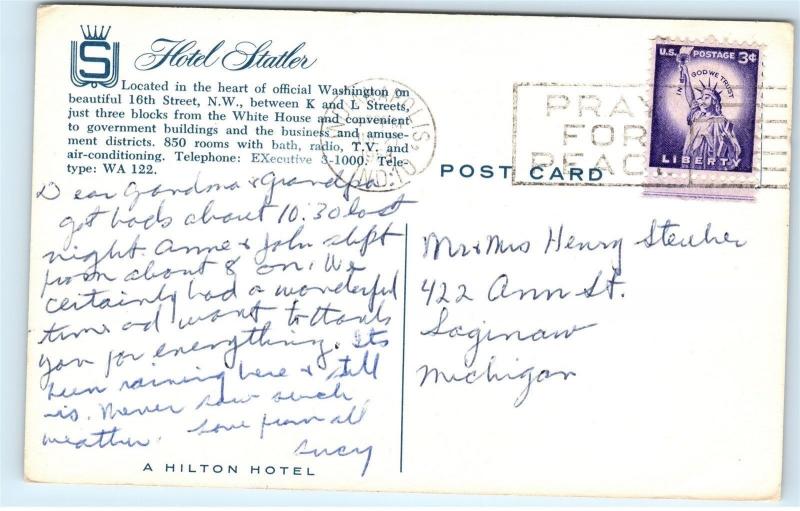 S
Hotel Statler
Located in the heart of official Washington on
beautiful 16th Street, N.W., between K and L Streets,
just three blocks from the White House and convenient
to government buildings and the business and amuse-
ment districts. 850 rooms with bath, radio, T.V. and
air-conditioning. Telephone: EXecutive 3-1000. Tele-
type: WA 122.
POST CARD
Dear Grandma & Grandpa
got back about 10:30 last
night. Anne & John slept
from about 8 on. We
certainly had a wonderful
time ad want to thank
you for everything. Its
been raining here & still
is. Never saw such
weather. Love from all
Lucy
A HILTON HOTEL
Mr & Mrs Henry Steuber
422 Ann St.
Saginaw
Michigan
U.S. POSTAGE 3¢
IN GOD WE TRUST
LIBERTY
PRAY
FOR
PEACE
IND.